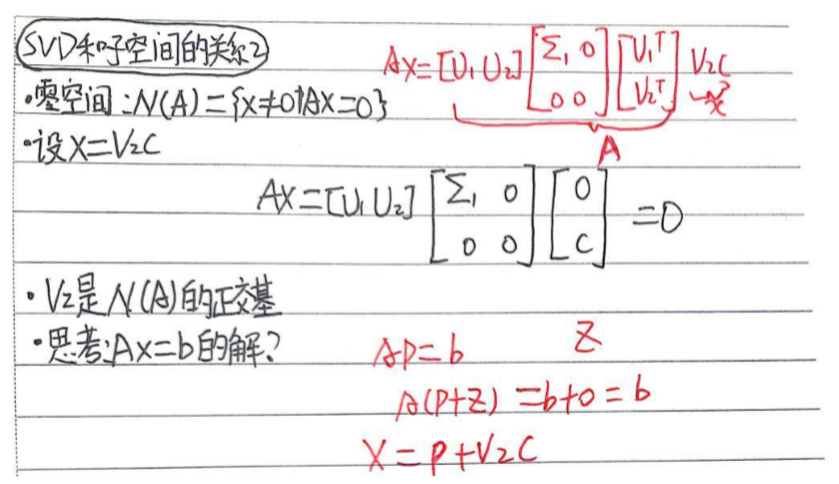 SVD和子空间的关系2
AX=[U₁ U₂] [Σ₁ 0; 0 0] [V₁ᵀ; V₂ᵀ] V₂C
→x
A
·零空间:N(A)={x≠0|Ax=0}
·设X=V₂C
AX=[U₁ U₂] [Σ₁ 0; 0 0] [0; C] =0
·V₂是N(A)的正交基
·思考:Ax=b的解?
AP=b Z
A(P+Z)=b+0=b
X=P+V₂C